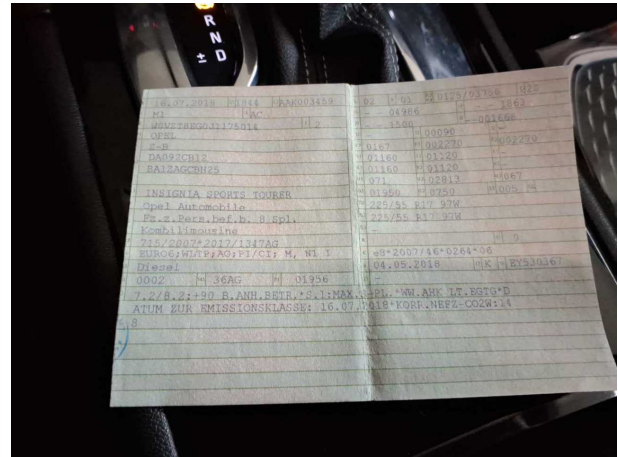 R
N
± D
16.07.2018 1844 AAK003459
M1 AC
2
OPEL
Z-B
DA092CB12
BA2ZAGCBH25
INSIGNIA SPORTS TOURER
Opel Automobile
Fz.z.Pers.bef.b. 8 Spl.
Kombilimousine
715/2007*2017/1347AG
EURO6;WLTP;AG;PI/CI; M, N1 I
Diesel
0002 36AG 01956
02 01 0125/03750
04986 1863
1500
00090
0167 002270 002270
01160 01120
01160 01120
071 02813 067
01956 0750 005
225/55 R17 97W
225/55 R17 97W
-
e8*2007/46*0264*06
04.05.2018 K EY530367
7.2/8.2:+90 B.ANH.BETR.*S.1:MAX. *WW.AHK LT.EGTG*D
ATUM ZUR EMISSIONSKLASSE: 16.07.2018*KORR.NEFZ-CO2W:14
8